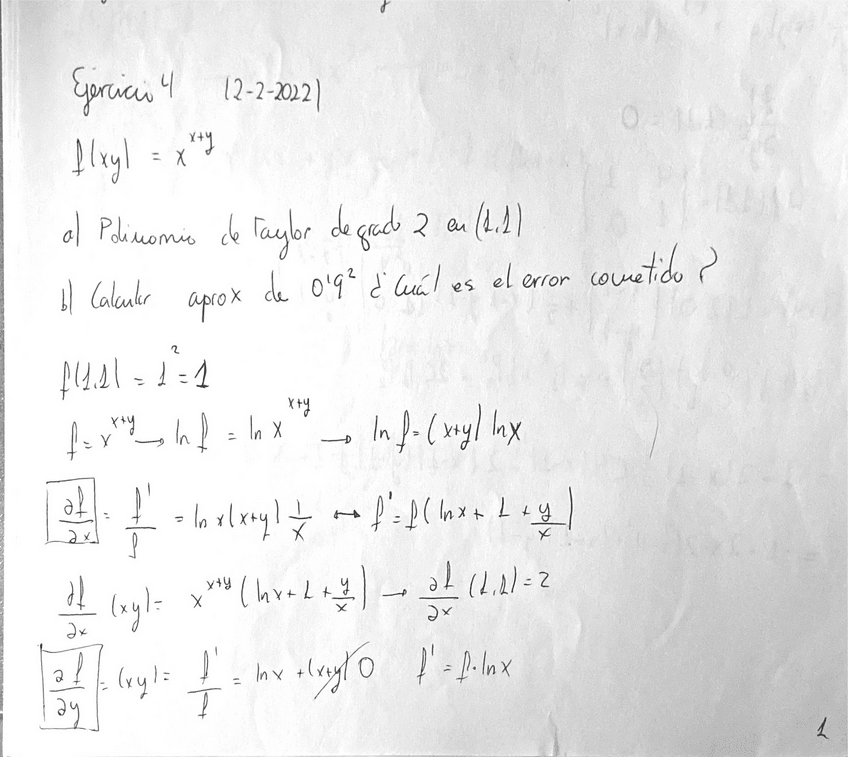 Ejercicio 4 (2-2-2022)
f(xy) = x^{x+y}
a) Polinomio de Taylor de grado 2 en (1,1)
b) Calcular aprox de 0'9² ¿Cuál es el error cometido?
f(1,1) = 1² = 1
f = x^{x+y} → ln f = ln x^{x+y} → ln f = (x+y) ln x
∂f/∂x = f'/f = ln x (x+y) 1/x ↔ f' = f (ln x + 1 + y/x)
∂f/∂x (xy) = x^{x+y} (ln x + 1 + y/x) → ∂f/∂x (1,1) = 2
∂f/∂y = (xy) = f'/f = ln x + (x+y) 0 f' = f · ln x
1